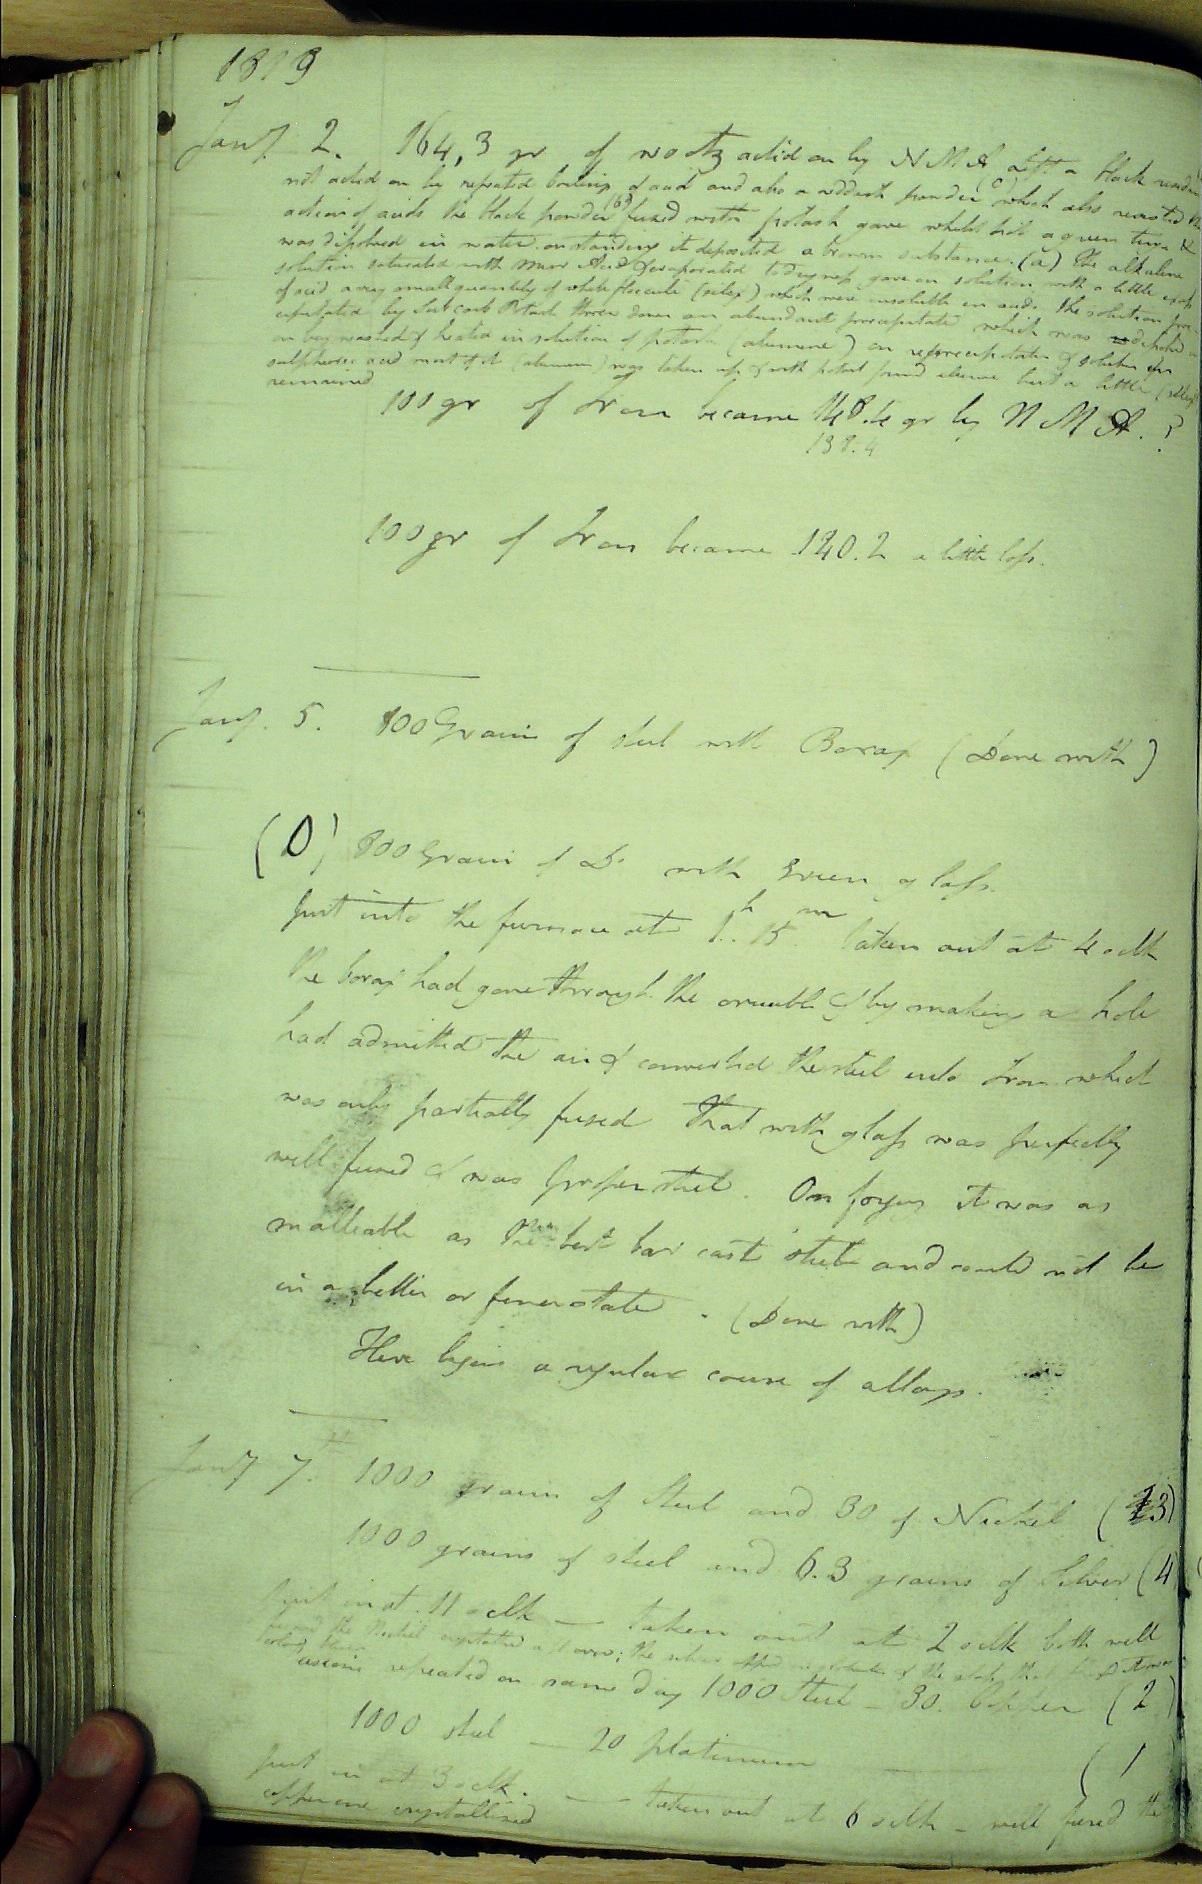 1819
Jany 2. 164,3 gr of wootz acted on by N M A left a black residue
not acted on by repeated boiling of acid and also a reddish powder (c) which also resisted the
action of acids the black powder (b) fused with potash gave whilst hot a green
was dissolved in water on standing it deposited a brown substance. (a) The alkaline
solution saturated with Mur Acid & evaporated to dryness gave on solution with a little
of acid a very small quantity of white flocculi (silex) which were insoluble in acids. The solution
cipitated by Sub carb Potash threw down an abundant precipitate which was
on being washed & heated in solution of potash (alumine) on reprecipitation & solution in
sulphuric acid most of it (alumine) was taken up & with potash found alumine but a little (silex)
remained
100 gr of Iron became 148.4 gr by N M A. ?
138.4
100 gr of Iron became 140.2 a little loſs.
Jany. 5. 800 Grains of steel with Borax (Done with)
(D) 800 Grains of Do with Green glaſs.
Put into the furnace at 1h.. 15m taken out at 4 oclk
The borax had gone through the crucible & by making a hole
had admitted the air & converted the steel into Iron which
was only partially fused That with glaſs was perfectly
well fused & was proper steel. On forging it was as
malleable as the best bar cast steel and could not be
in a better or finer state. (Done with)
Here begins a regular course of alloys.
Jany 7th. 1000 grains of Steel and 30 of Nickel (3)
1000 grains of steel and 6.3 grains of Silver (4
Put in at 11 oclk — taken out at 2 oclk both well
fused the Nickel crystallized all over; the silver
repeated on same day 1000 Steel – 30. Copper (2)
1000 steel — 20 platinum (1
Put in at 3 oclk. — taken out at 6 oclk – well fused the
copper one crystallized